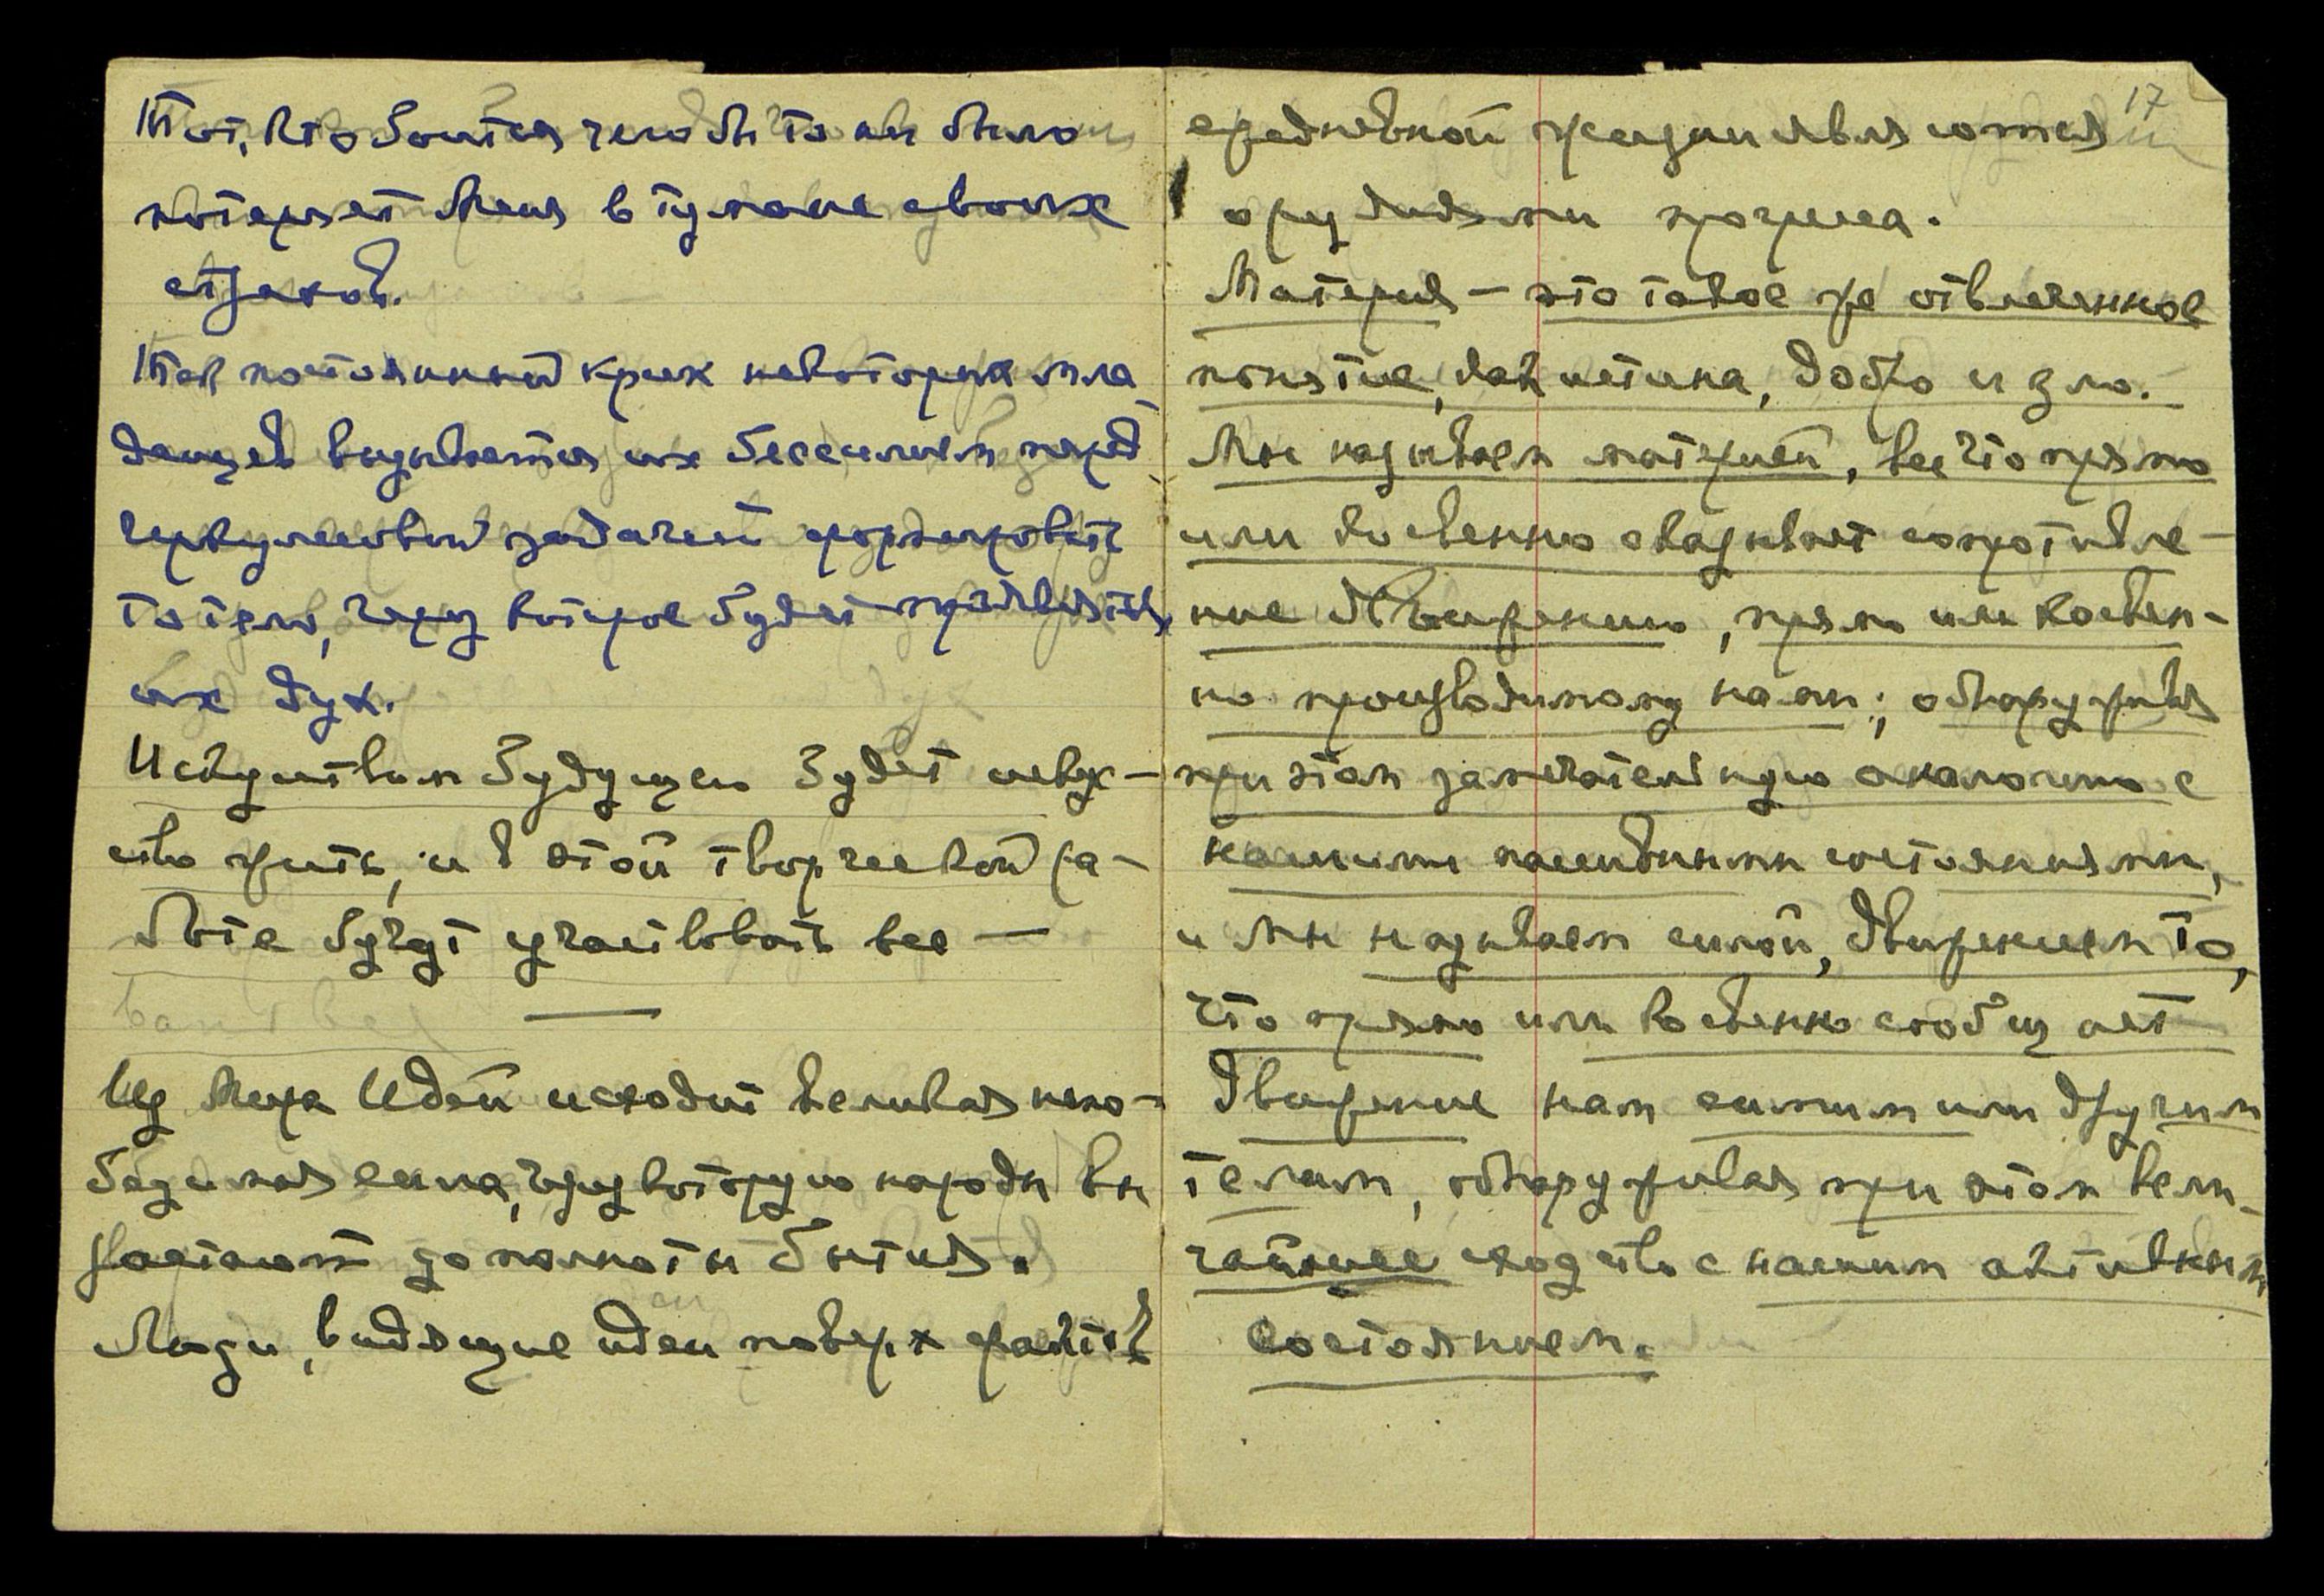 Тот, кто боится чего бы то ни было
потеряет меня в тумане своих
страхов.
Так постоянный крик некоторых мла-
денцев вызывается их бессилием перед
геркулесовой задачей формировать
то тело, через которое будет проявляться
их дух.
Искусством будущего будет искус-
ство жить, и в этой творческой ра-
боте будут участвовать все —
Из Мира Идей исходит великая непо-
бедимая сила, через которую народы вы
растают до полноты бытия.
Люди, видящие идеи поверх фактов
17
средневной жизни являются
орудиями прогресса.
Материя — это такое же отвлеченное
понятие, как истина, добро и зло.
Мы называем материей, все что прямо
или косвенно оказывает сопротивле-
ние движению, прямо или косвен-
но производимому нами; обнаруживая
при этом замечательную аналогию с
нашими пассивными состояниями,
и мы называем силой, движением то,
что прямо или косвенно сообщает
движение нам самим или другим
телам, обнаруживая при этом вели-
чайшее сходство с нашим активным
состоянием.